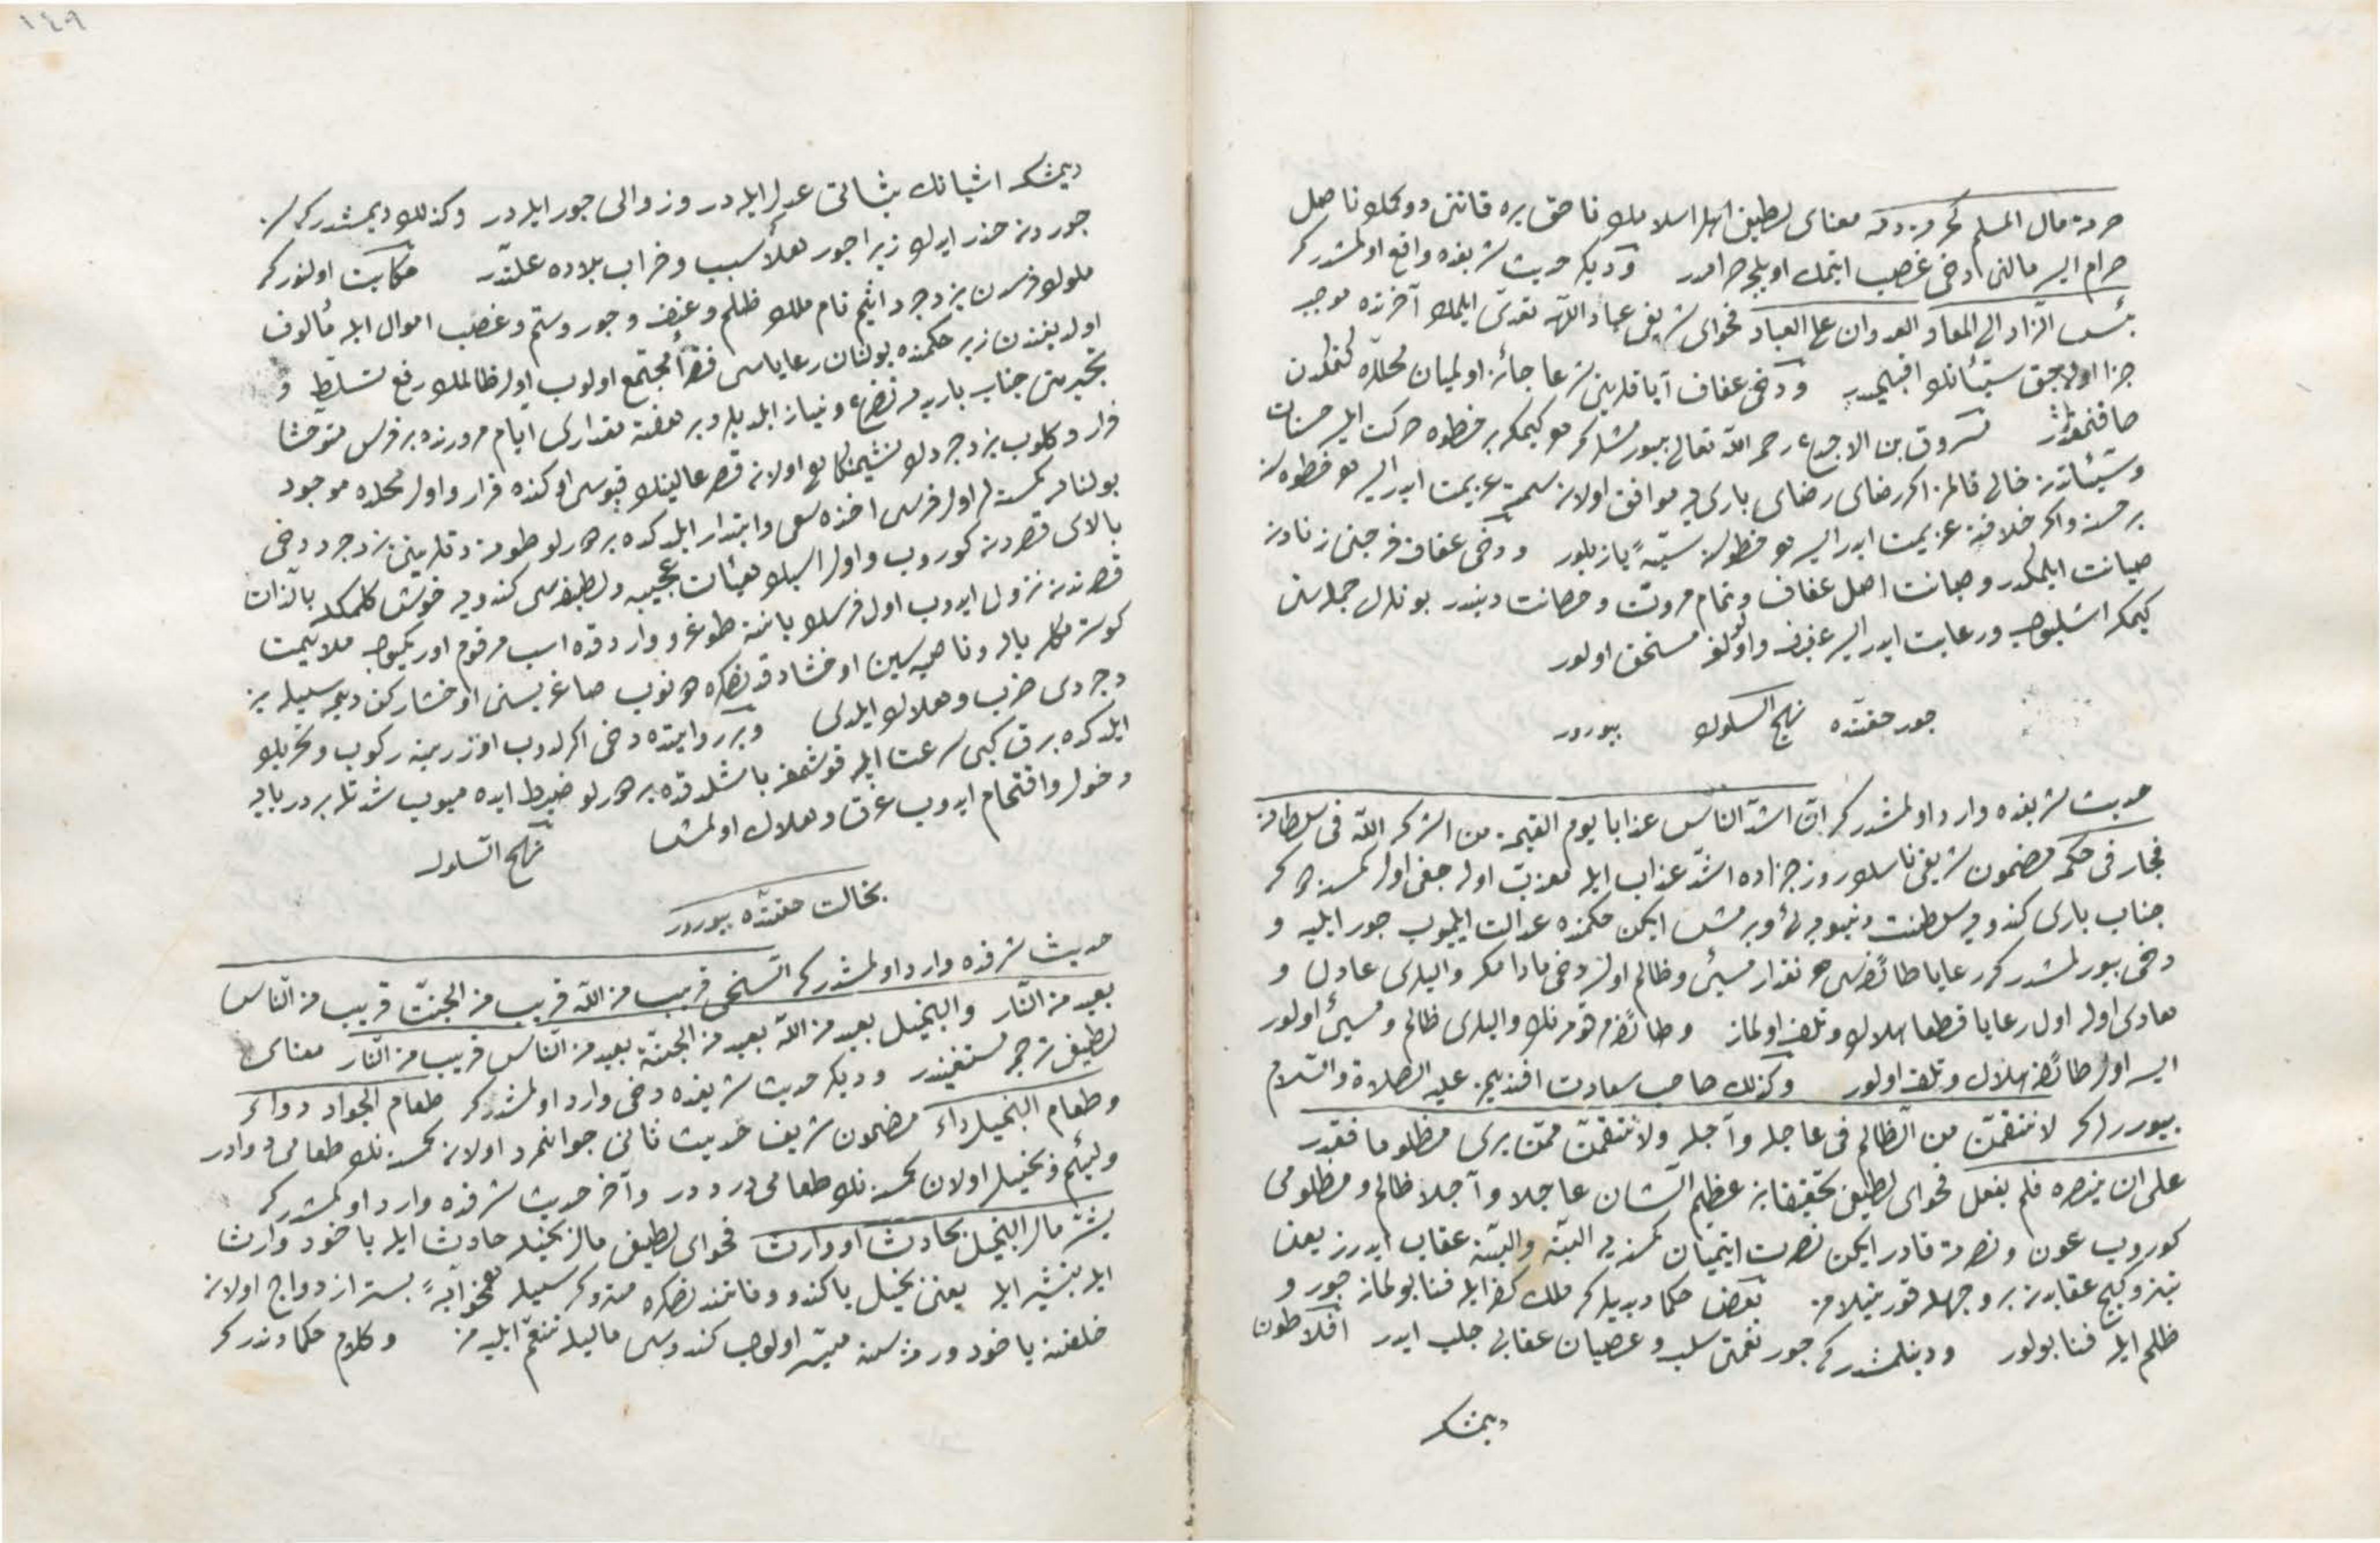 حرمة مال المسلم كحرمة دمه معناى لطيفى اهل اسلامك ناحق يره قاننى دوكمك ناصل
حرام ايسه مالنى دخى غصب ايتمك اويلجه حرامدر وديكر حديث شريفده واقع اولمشدركه
بئس الزاد الى المعاد العدوان على العباد فحواى شريفى عباد اللهه تعدى ايلمك آخرتده موجب
جزا اوله جق سيئاتك اقبحيدر ودخى عفاف آياقلرينى شرعا جائز اولميان محللره كتمكدن
مسروق بن الاجدع رحمه الله تعالى بيورمشلركه هر كيمكه بر خطوه حركت ايلسه حسنات
وسيئاتدن خالى قالمز اكر رضاى بارى يه موافق اولان سمته عزيمت ايدر ايسه هر خطوه سنه
بر حسنه واكر خلافنه عزيمت ايدر ايسه هر خطوه سنه سيئه يازيلور ودخى عفاف فرجنى زنادن
صيانت ايلمكدر وصيانت اصل عفاف وتمام مروت وحصانت دينيدر بونلرك جمله سنى
كيمكه اشليوب ورعايت ايدر ايسه مستحق اولور
جور حقنده نهج السلوك بيورور
حديث شريفده وارد اولمشدركه ان اشد الناس عذابا يوم القيمة من اشركه الله فى سلطانه
فجار فى حكمه مضمون شريفى ناسك روز جزاده اشد عذاب ايله معذب اوله جغى اول كمسنه در كه
جناب بارى كندويه سلطنت دنيويه يى ويرمش ايكن حكمنده عدالت ايلميوب جور ايليه و
دخى بيورلمشدركه رعايا طائفه سى هر نقدار مسئ وظالم اولنرده دخى مادامكه واليلرى عادل و
هادى اوله اول رعايا قطعا هلاك وتلف اولماز وطائفه مرقومه نك واليلرى ظالم ومسئ اولور
ايسه اول طائفه هلاك وتلف اولور وكذلك صاحب سعادت افنديمز عليه الصلاة والسلام
بيوررلركه لانتقمن من الظالم فى عاجله وآجله ولانتقمن ممن يرى مظلوما فقدر
على ان ينصره فلم يفعل فحواى لطيفى تحقيقا بن عظيم الشان عاجلا وآجلا ظالم ومظلومى
كوروب عون ونصرته قادر ايكن نصرت ايتميان كمسنه يه البته والبته عقاب ايدرز يعنى
تيز وكيچ عقابدن بر وجهله قورتيلامز بعض حكما ديديلركه ملك كفر ايله فنا بولماز جور و
ظلم ايله فنا بولور ودينلمشدركه جور نعمتى سلب وعصيان عقابى جلب ايدر افلاطون
ديمشكه
١٤٩
ديمشكه اشيانك ثباتى عدل ايله در وزوالى جور ايله در وكذلك ديمشدركه
جوردن حذر ايدك زيرا جور هلاكه سبب وخراب بلاده علتدر حكايت اولنوركه
ملوك فرسدن يزدجرد اثيم نام ملك ظلم وعنف وجور وستم وغصب اموال ايله مألوف
اولديغندن زير حكمنده بولنان رعاياسى فقرا مجتمع اولوب اول ظالمك رفع تسلط و
تجبرينى جناب باريدن تضرع ونياز ايلديلر وبر هفته مقدارى ايام مرورنده بر فرس متوحشا
فرار وكلوب يزدجردك نشيمنكاهى اولان قصر عالينك قپوسى اوكنده قرار واول محلده موجود
بولنان كمسه لر اول فرسى اخذه سعى وابتدار ايلدكده بر درلو طوته مدقلرينى يزدجرد دخى
بالاى قصردن كوروب واول اسبك هيئات عجيبه ولطيفه سى كندويه خوش كلمكله بالذات
قصرندن نزول ايدوب اول فرسك ياننه طوغرو واردقده اسب مرقوم اورکميوب ملايمت
كوسترمكله يال وناصيه سين اوخشادقدنصكره دونوب صاغريسنى اوخشاركن دپمه سيله يز
دجردى ضرب وهلاك ايلدى وبر روايتده دخى اكرلدوب اوزرينه ركوب وتحريك
ايلدكده برق كبى سرعت ايله قوشمغه باشلدقده بر درلو ضبط ايده ميوب شدتله بر دريايه
دخول واقتحام ايدوب غرق وهلاك اولمشدر نهج السلوك
بخالت حقنده بيورور
حديث شريفده وارد اولمشدركه السخى قريب من الله قريب من الجنة قريب من الناس
بعيد من النار والبخيل بعيد من الله بعيد من الجنة بعيد من الناس قريب من النار معناى
لطيفى ترجمه دن مستغنيدر وديكر حديث شريفده دخى وارد اولمشدركه طعام الجواد دواء
وطعام البخيل داء مضمون شريف حديث ثانى جوانمرد اولان كمسه نك طعامى دوادر
ولئيم وبخيل اولان كمسه نك طعامى درددر وآخر حديث شريفده وارد اولمشدركه
بشر مال البخيل بحادث او وارث فحواى لطيفى مال بخيله حادث ايله ياخود وارث
ايله تبشير ايله يعنى بخيل ياكندو وفاتندنصكره
خلفنه ياخود ورثه سنه ميسر اولوب كندوسى ماليله تنعم ايليه مز وكلام حكمادندركه